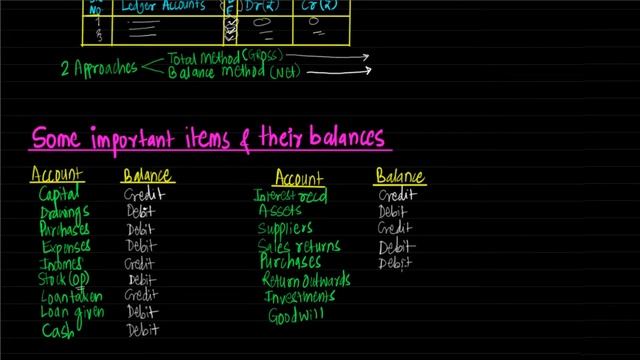 No. Ledger Accounts F Dr(₹) Cr(₹)
1
2
2 Approaches
Total Method (GROSS)
Balance method (NET)
Some important items & their balances
Account Balance Account Balance
Capital Credit Interest recd Credit
Drawings Debit Assets Debit
Purchases Debit Suppliers Credit
Expenses Debit Sales returns Debit
Incomes Credit Purchases Debit
Stock (OP) Debit Return Outwards
Loan taken Credit Investments
Loan given Debit Goodwill
Cash Debit